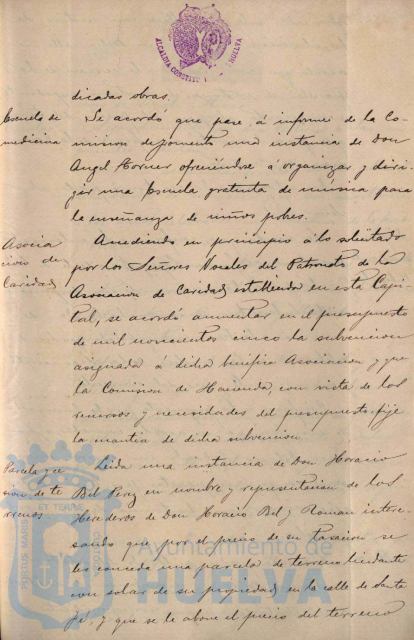 ALCALDIA CONSTITUCIONAL HUELVA
dicadas obras.
Escuela de
medicina
Se acordó que pase á informe de la Co-
mision de fomento una instancia de Don
Angel Torner ofreciendose á organizar y diri-
gir una Escuela gratuita de música para
la enseñanza de niños pobres.
Asocia
cion de
Caridad
Accediendo en principio á lo solicitado
por los Señores Vocales del Patronato de la
Asociacion de Caridad establecida en esta Capi-
tal, se acordó aumentar en el presupuesto
de mil novecientos cinco la subvencion
asignada á dicha benéfica Asociacion y que
la Comision de Hacienda, con vista de los
recursos y necesidades del presupuesto, fije
la cuantia de dicha subvencion.
Parcela y ce
sion de te
rrenos
Leida una instancia de Don Horacio
Bel Perez en nombre y representacion de los
Herederos de Don Horacio Bel y Roman intere-
sando que por el precio de su tasacion se
les conceda una parcela de terreno lindante
con solar de su propiedad en la calle de Santa
Fé, y que se le abone el precio del terreno
PORTUS MARIS ET TERRE
Ayuntamiento de
HUELVA